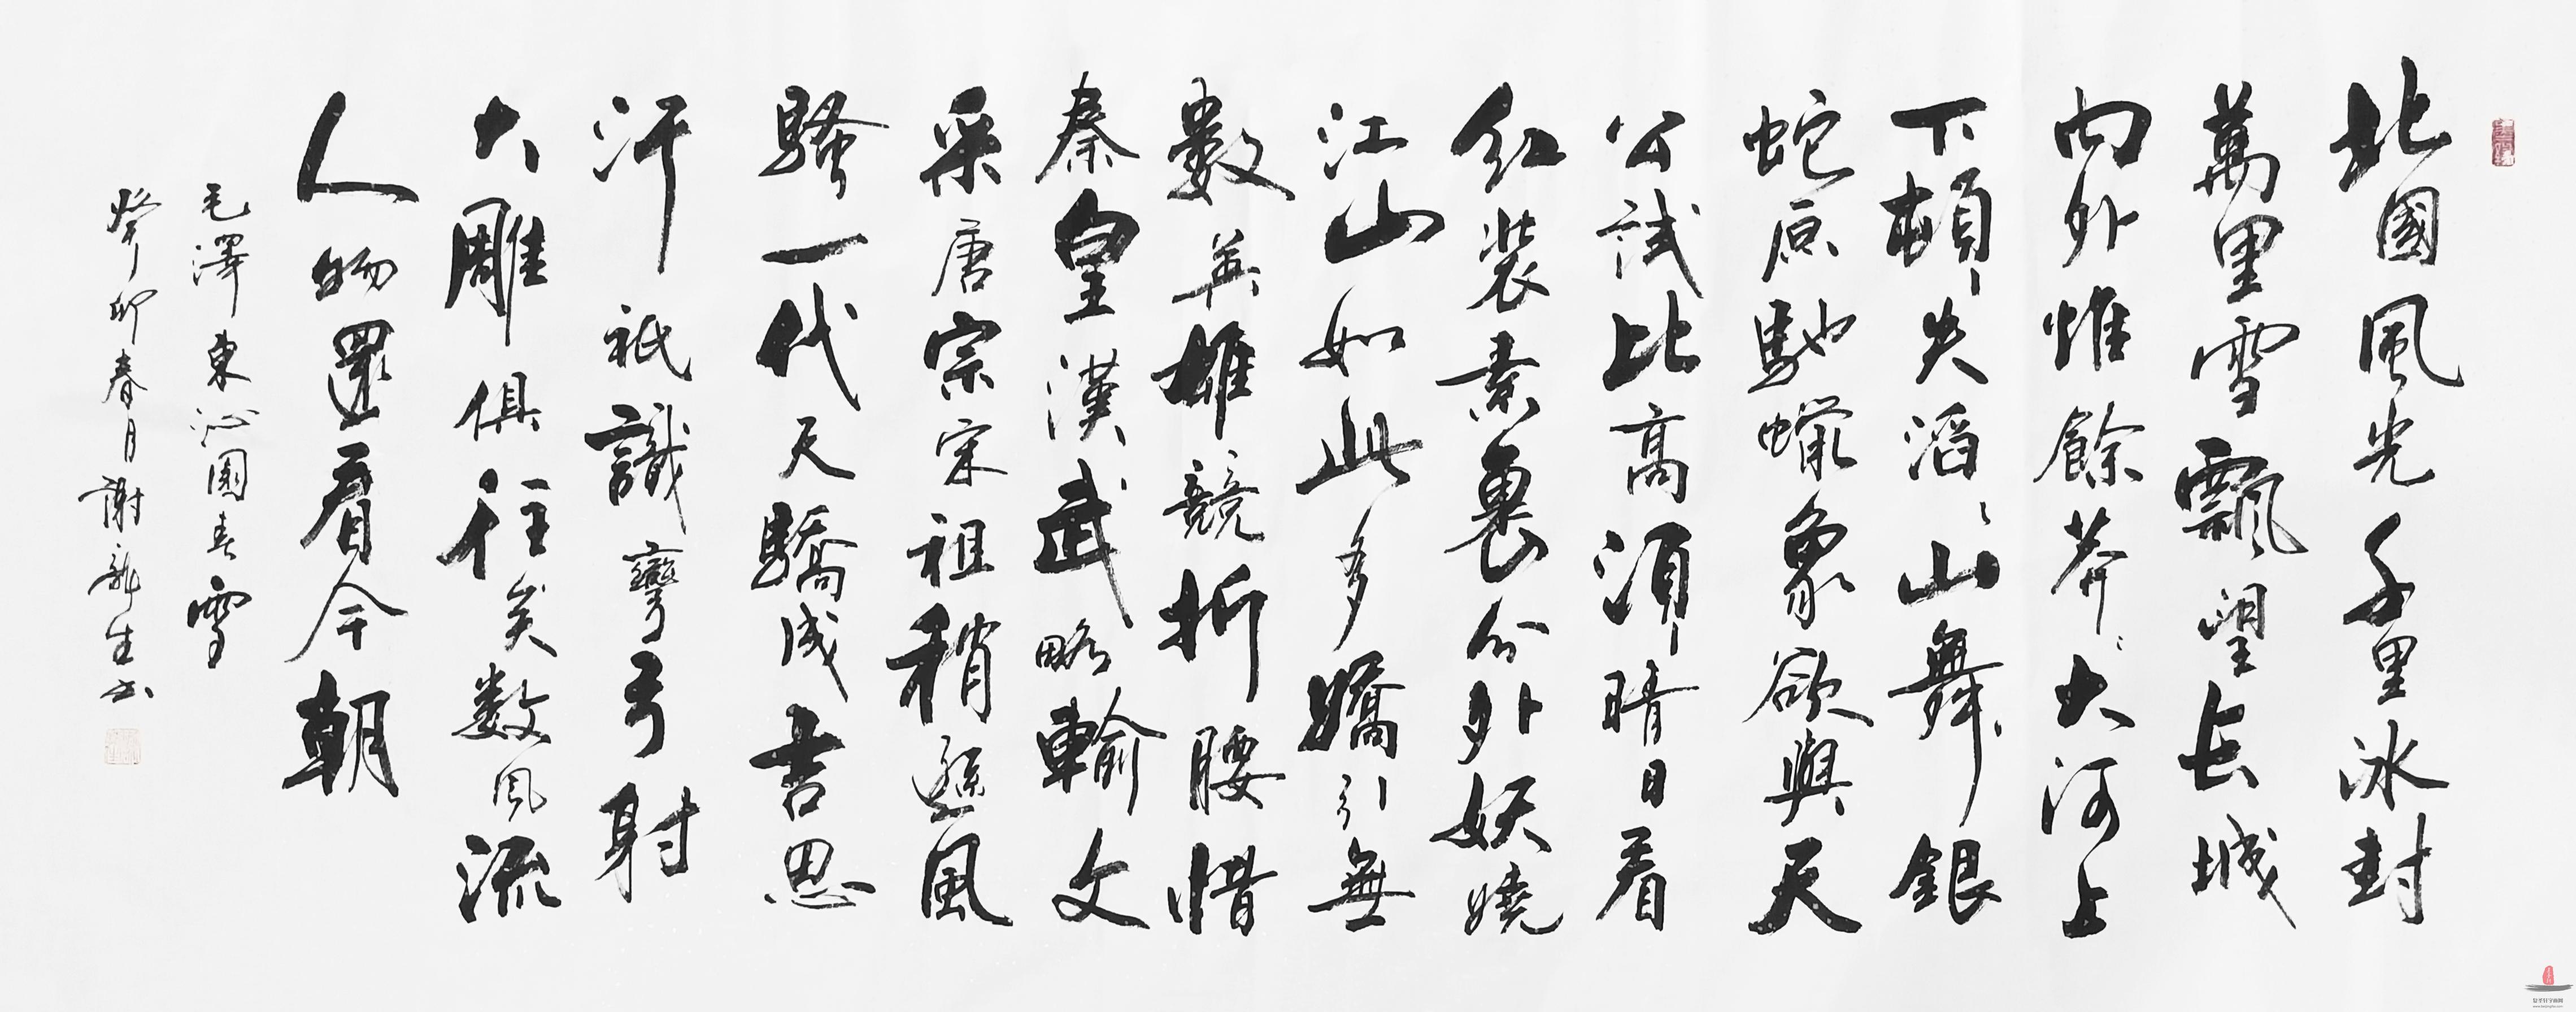 北國風光千里冰封
萬里雪飄望長城
內外惟餘莽〻大河上
下頓失滔〻山舞銀
蛇原馳蠟象欲與天
公試比高須晴日看
紅裝素裹份外妖嬈
江山如此多嬌引無
數英雄競折腰惜
秦皇漢武略輸文
采唐宗宋祖稍遜風
騷一代天驕成吉思
汗祇識彎弓射
大雕俱往矣数風流
人物還看今朝
毛澤東沁園春雪
癸卯春月謝新生书